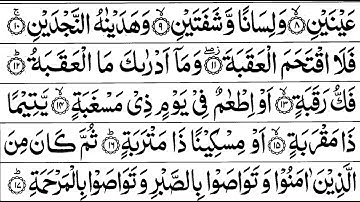 عَيْنَيْنِ ۙ﴿۸﴾ وَلِسَانًا وَّشَفَتَيْنِ ۙ﴿۹﴾ وَهَدَيْنٰهُ النَّجْدَيْنِ ۚ﴿۱۰﴾
فَلَا اقْتَحَمَ الْعَقَبَةَ ۖ﴿۱۱﴾ وَمَاۤ اَدْرٰىكَ مَا الْعَقَبَةُ ؕ﴿۱۲﴾
فَكُّ رَقَبَةٍ ۙ﴿۱۳﴾ اَوْ اِطْعٰمٌ فِيْ يَوْمٍ ذِيْ مَسْغَبَةٍ ۙ﴿۱۴﴾ يَّتِيْمًا
ذَا مَقْرَبَةٍ ۙ﴿۱۵﴾ اَوْ مِسْكِيْنًا ذَا مَتْرَبَةٍ ؕ﴿۱۶﴾ ثُمَّ كَانَ مِنَ
الَّذِيْنَ اٰمَنُوْا وَتَوَاصَوْا بِالصَّبْرِ وَتَوَاصَوْا بِالْمَرْحَمَةِ ؕ﴿۱۷﴾